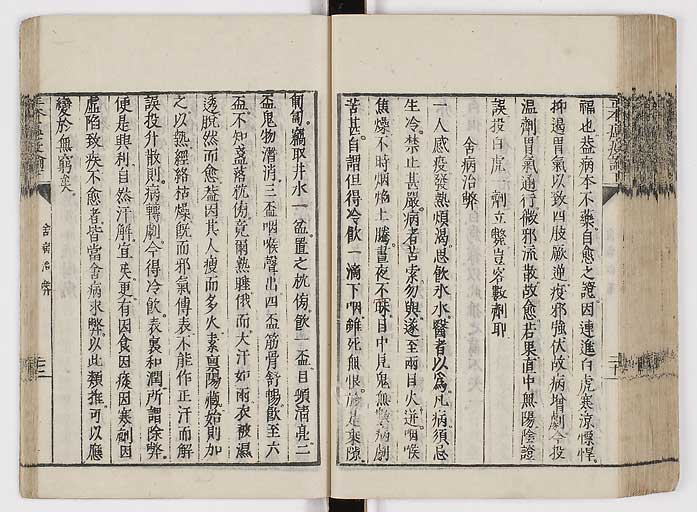 福也蓋病本不藥自愈之證因連進白虎寒涼慓悍
抑遏胃氣以致四肢厥逆疫邪强伏故病增劇今投
温劑胃氣通行微邪流散故愈若果直中無陽陰證
誤投白虎一劑立斃豈容數劑耶
舍病治弊
一人感疫發熱煩渴思飲氷水醫者以為凡病須忌
生冷禁止甚嚴病者苦索勿與遂至兩目火迸咽喉
焦燥不時烟焰上騰晝夜不寐目中見鬼無數病劇
苦甚自謂但得冷飲一滴下咽雖死無恨於是乘隙
匍匐竊取井水一盆置之枕傍飲一盃目頓清亮二
盃鬼物潛消三盃咽喉聲出四盃筋骨舒暢飲至六
盃不知盞落枕傍竟爾熟睡俄而大汗如雨衣被濕
透脫然而愈蓋因其人瘦而多火素稟陽臟始則加
之以熱經絡枯燥既而邪氣傳表不能作正汗而解
誤投升散則病轉劇今得冷飲表裏和潤所謂除弊
便是興利自然汗解宜矣更有因食因痰因寒劑因
虛陷致疾不愈者皆當舍病求弊以此類推可以應
變於無窮矣
舍病治弊